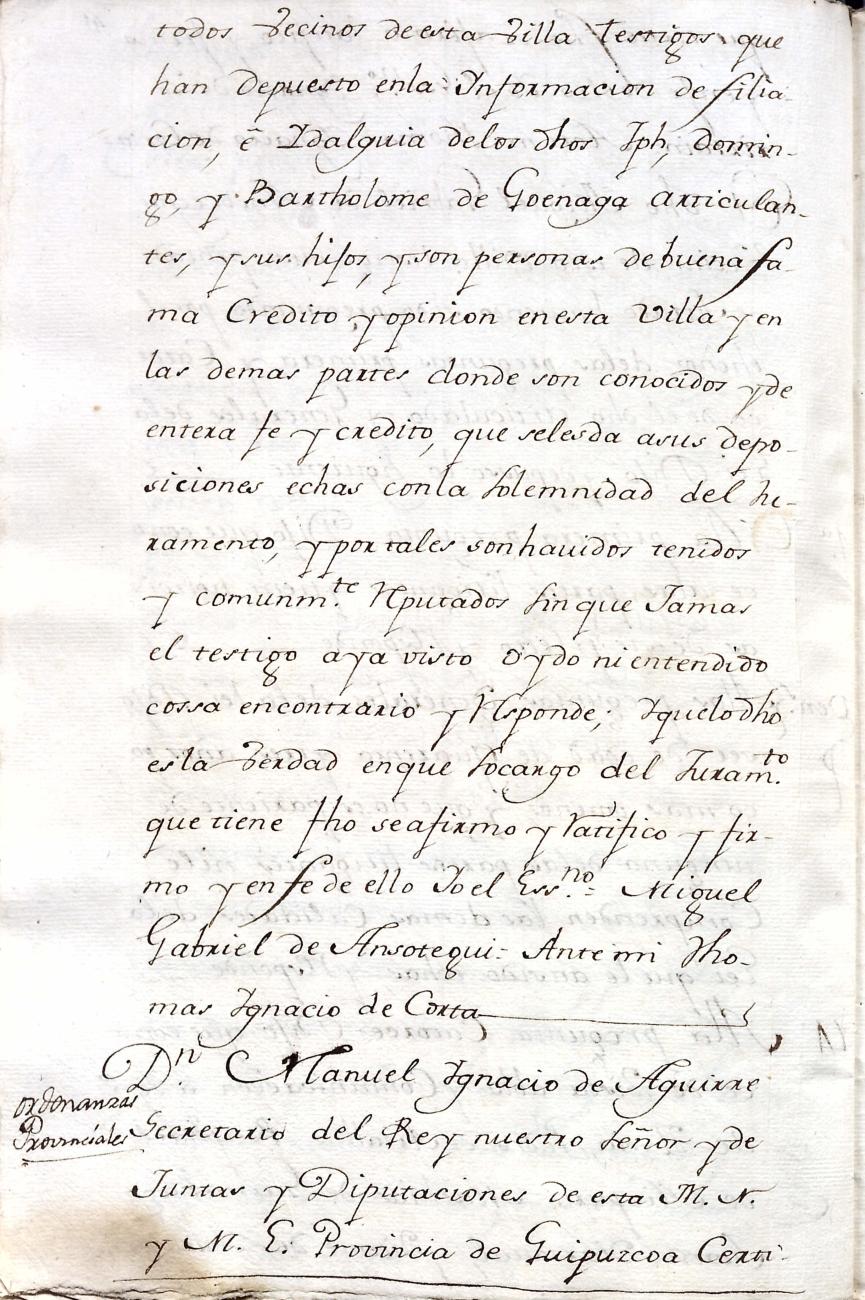 todos Vecinos de esta Villa Testigos que
han Depuesto enla Informacion de filia-
cion, ê Ydalguia delos dhos Jph, Domin-
go, y Bartholome de Goenaga articulan-
tes, y sus hijos, y son personas de buena fa-
ma Credito y opinion en esta Villa y en
las demas partes donde son conocidos y de
entera fe y credito, que seles da a sus depo-
siciones echas conla solemnidad del Ju-
ramento, y por tales son hauidos tenidos
y comunm.te Reputados sin que Jamas
el testigo aya visto oydo ni entendido
cossa en contrario y Responde; Yquelo dho
es la Verdad en que so cargo del Juram.to
que tiene fho se afirmo y Ratifico y fir-
mo y en fe de ello Yo el Ess.no = Miguel
Gabriel de Ansotegui = Ante mi Tho-
mas Ygnacio de Corta
D.n Manuel Ygnacio de Aguirre
ordenanzas
Provinciales
Secretario del Rey nuestro Señor y de
Juntas y Diputaciones de esta M. N.
y M. L. Provincia de Guipuzcoa Certi-